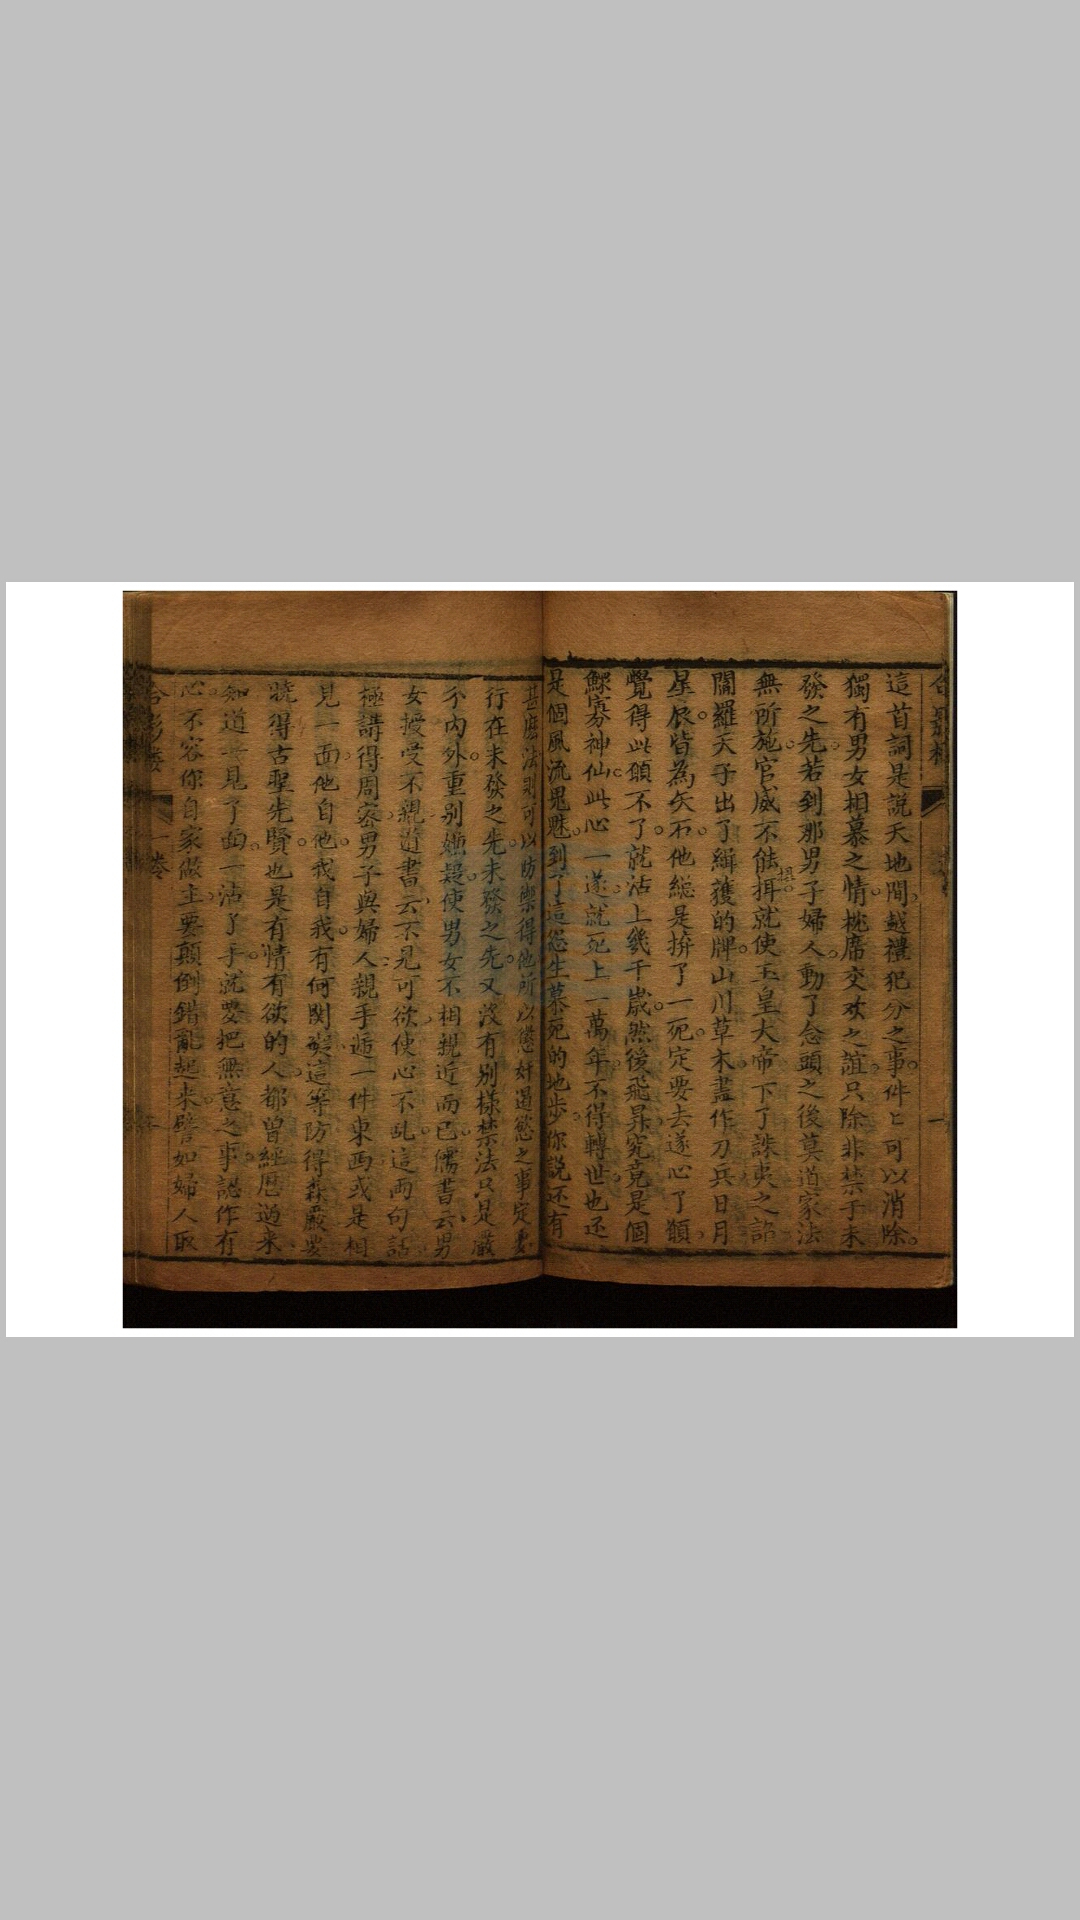 這首詞是說天地間越禮犯分之事件匕可以消除
獨有男女相慕之情枕席交欢之誼只除非禁于未
發之先若到那男子婦人動了念頭之後莫道家法
無所施官威不能揖就使玉皇大帝下了誅夷之詔
閻羅天子出了緝獲的牌山川草木盡作刀兵日月
星辰皆為矢石他総是拚了一死定要去遂心了願
覺得此願不了就活上幾千歲然後飛昇究竟是個
鰥寡神仙此心一遂就死上一萬年不得轉世也还
是個風流鬼魅到了這怨生慕死的地步你説还有
甚麽法則可以防禦得他所以懲奸遏慾之事定要
行在未發之先未發之先又没有别様禁法只是嚴
不内外重别嫌疑使男女不相親近而已儒書云男
女授受不親道書云不見可欲使心不乱這两句話
極講得周密男子與婦人親手逓一件東西或是相
見一面他自他我自我有何関碍這等防得森嚴要
曉得古聖先賢也是有情有欲的人都曾經歴過来
知道一見了面一沾了手就要把無意之事認作有
心不容你自家做主要顛倒錯亂起来譬如婦人取
合影楼
一巻